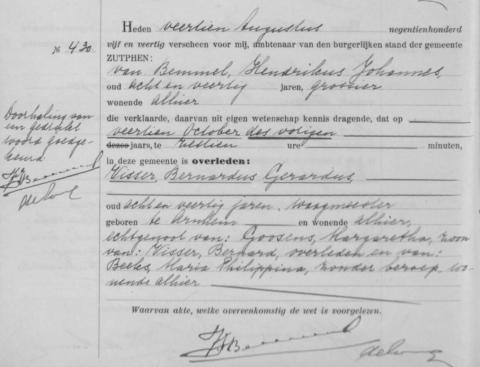 Heden veertien Augustus negentienhonderd
No. 430.
vijf en veertig verscheen voor mij, ambtenaar van den burgerlijken stand der gemeente
ZUTPHEN:
van Bemmel, Hendrikus Johannes,
oud acht en veertig jaren,
wonende alhier
die verklaarde, daarvan uit eigen wetenschap kennis dragende, dat op
veertien October des vorigen
dezes jaars, te zestien ure minuten,
in deze gemeente is overleden:
Visser, Bernardus Gerardus
oud acht en veertig jaren, waagmeester
geboren te Arnhem en wonende alhier,
echtgenoot van: Goosens, Margaretha, zoon
van: Visser, Bernard, overleden en van:
Maria Philippina, zonder beroep, wo-
nende alhier
Doorhaling van
een gedrukt
woord goedge-
keurd
Waarvan akte, welke overeenkomstig de wet is voorgelezen.